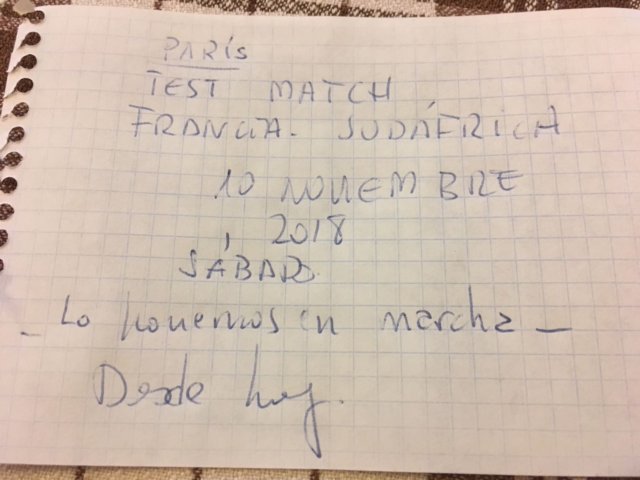 PARÍS
TEST MATCH
FRANCIA - SUDÁFRICA
10 NOVIEMBRE
2018
SÁBADO
- Lo ponemos en marcha -
Desde hoy.